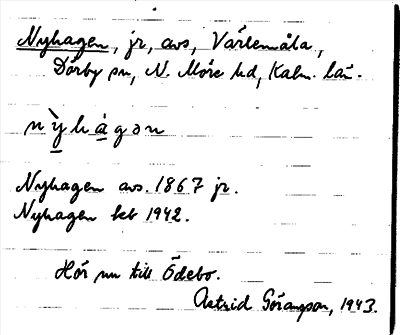 Nyhagen, jr, avs, Värlemåla,
Dörby sn, N. Möre hd, Kalm. län.
nỳhágən
Nyhagen avs. 1867 jr.
Nyhagen kb 1942.
Hör nu till Ödebo.
Astrid Göransson, 1943.